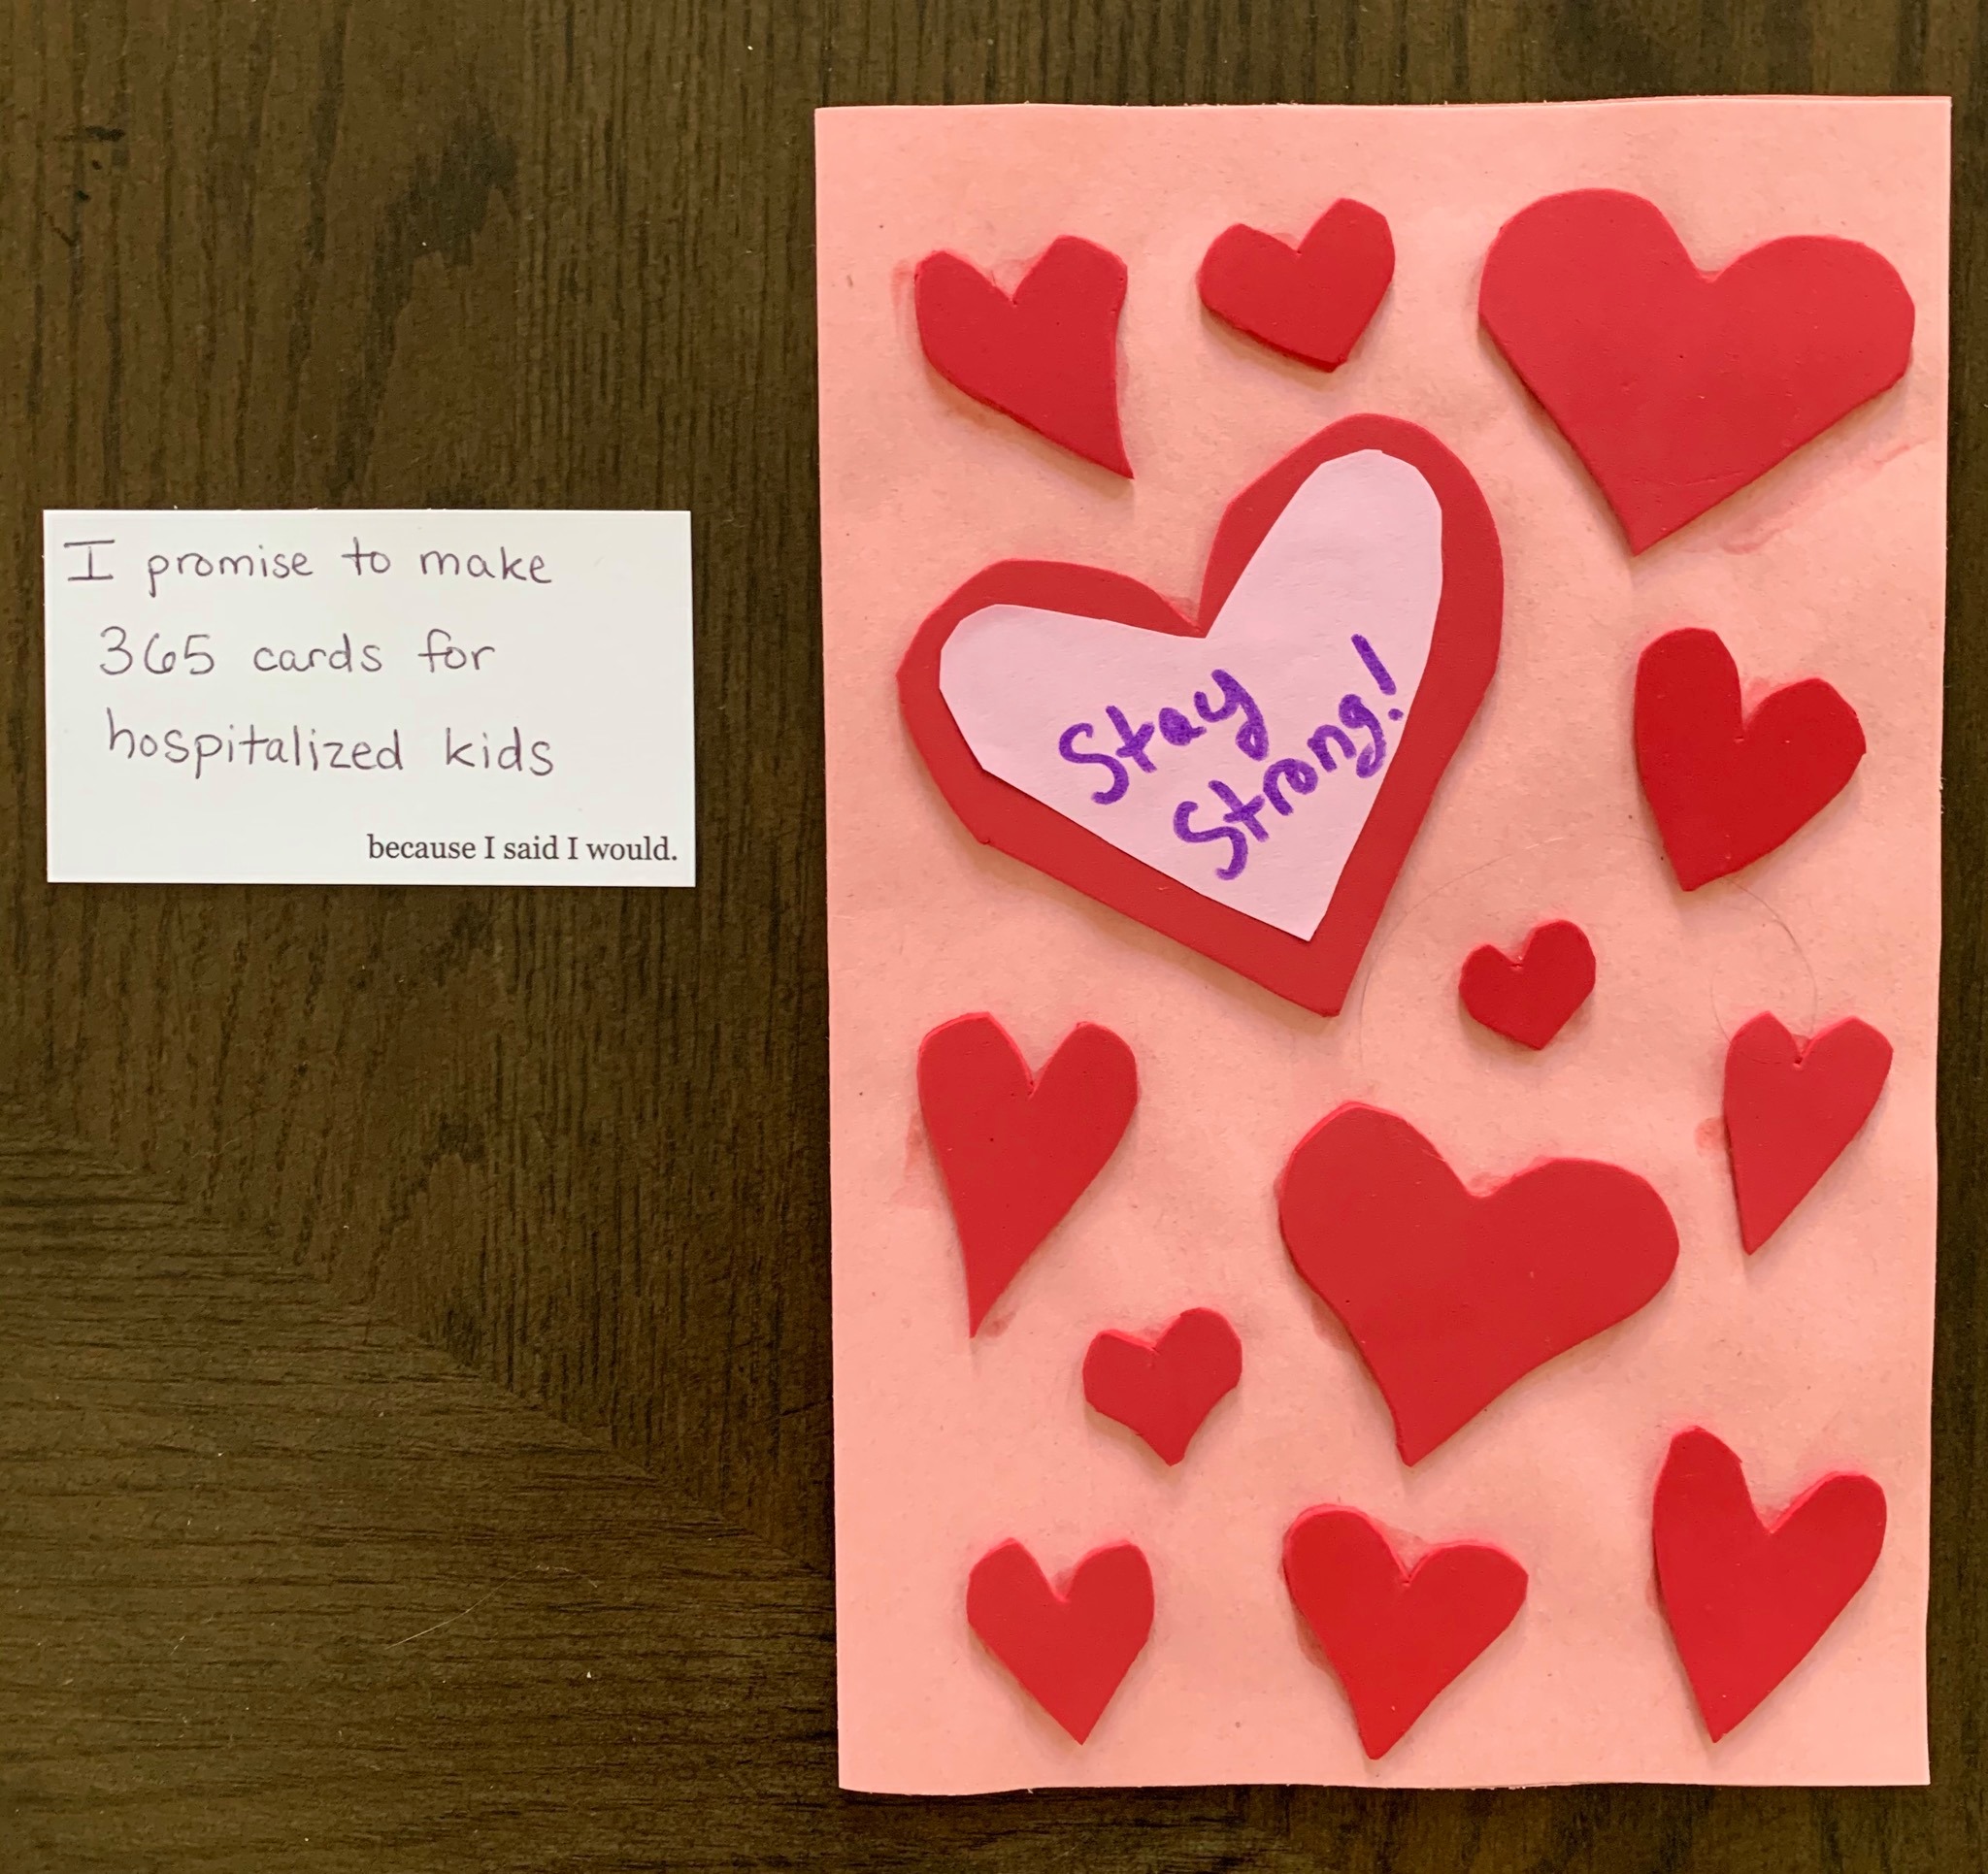 I promise to make
365 cards for
hospitalized kids
because I said I would.
Stay
Strong!